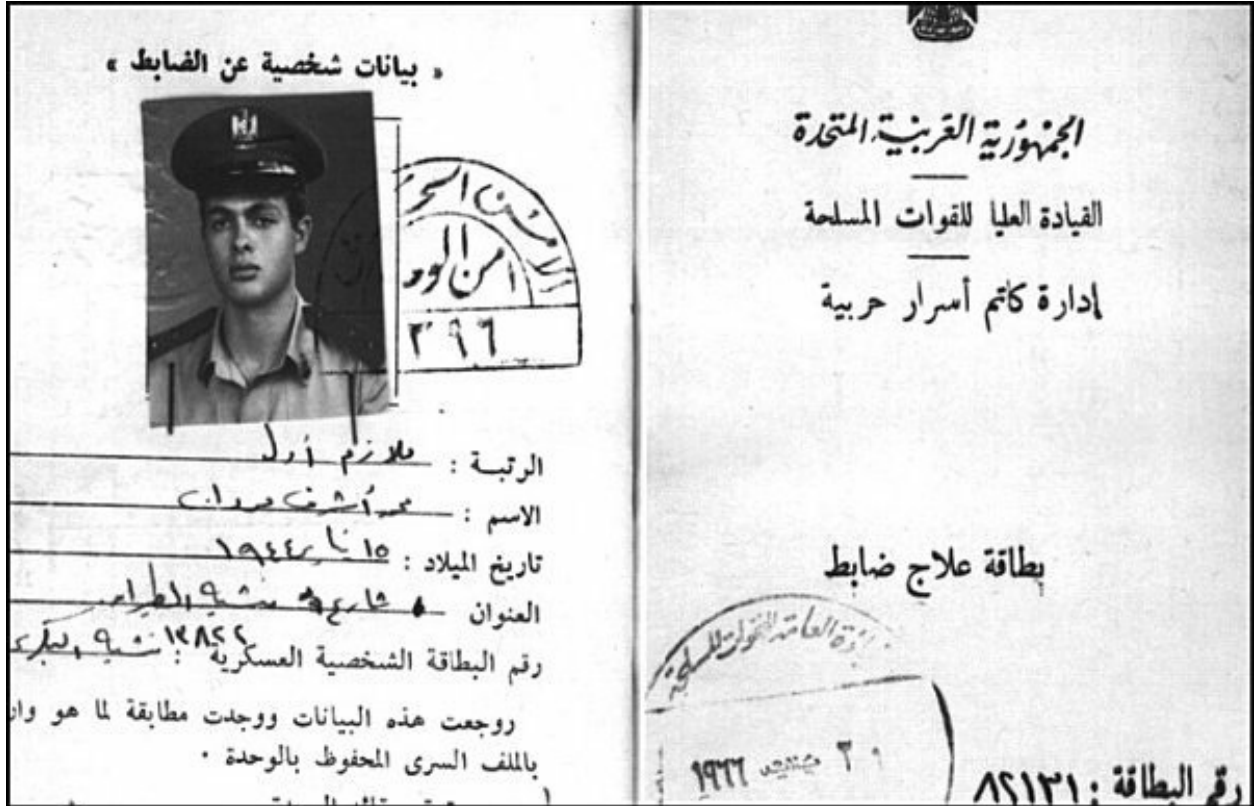 الجمهورية العربية المتحدة
القيادة العليا للقوات المسلحة
إدارة كاتم أسرار حربية
بطاقة علاج ضابط
١٩٦٦
رقم البطاقة : ٨٢١٣١
« بيانات شخصية عن الضابط »
أمن الوحدات
٣٩٦
الرتبة : ملازم أول
الاسم : محمد أشرف مروان
تاريخ الميلاد : ١٥ يناير ١٩٤٤
العنوان شارع منشية الطيران
رقم البطاقة الشخصية العسكرية : ١٣٨٢٢
روجعت هذه البيانات ووجدت مطابقة لما هو وار
بالملف السرى المحفوظ بالوحدة .